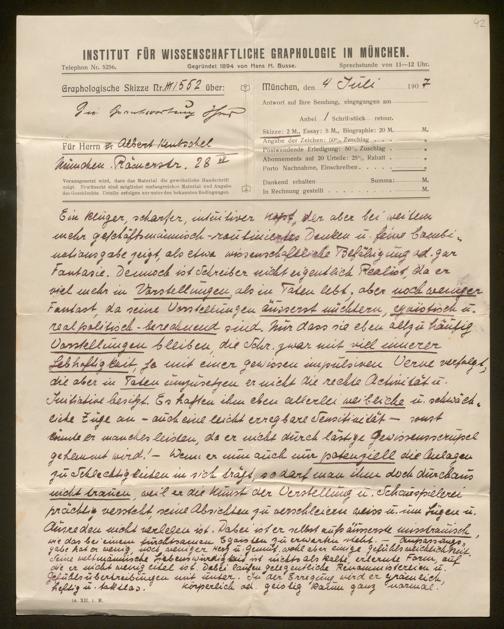 42
INSTITUT FÜR WISSENSCHAFTLICHE GRAPHOLOGIE IN MÜNCHEN.
Telephon Nr. 5256. Gegründet 1894 von Hans H. Busse. Sprechstunde von 11—12 Uhr.
Graphologische Skizze Nr. 1552 über:
München, den 4 Juli 1907
Antwort auf Ihre Sendung, eingegangen am
Anbei 1 Schriftstück retour.
Skizze: 2 M., Essay: 5 M., Biographie: 20 M. M.
Angabe der Zeichen: 50% Zuschlag
Postwendende Erledigung: 50% Zuschlag
Abonnements auf 20 Urteile: 25% Rabatt
Porto Nachnahme, Einschreiben
Dankend erhalten Summa: M.
In Rechnung gestellt M.
Für Herrn Albert Rentschel
München. Römerstr. 28
Ein kluger, scharfer, intuitiver Kopf, der aber bei weitem
mehr geschäftsmännisch-routiniertes Denken u. feine Combi-
nationsgabe zeigt, als etwa wissenschaftliche Befähigung od. gar
Fantasie. Dennoch ist Schreiber nicht eigentlich Realist, da er
viel mehr in Vorstellungen als in Taten lebt, aber noch weniger
Fantast, da seine Vorstellungen äusserst nüchtern, egoistisch u.
realpolitisch-berechnend sind. Nur dass sie eben allzu häufig
Vorstellungen bleiben, die Schr. zwar mit viel innerer
Lebhaftigkeit, ja mit einer gewissen impulsiven Verve verfolgt,
die aber in Taten umzusetzen er nicht die rechte Activität u.
Initiative besitzt. Es haften ihm eben allerlei weibliche u. schwäch-
liche Züge an — auch eine leicht erregbare Sensitivität — sonst
könnte er manches leisten, da er nicht durch lästige Gewissensscrupel
gehemmt wird! — Wenn er nun auch nur potenziell die Anlagen
zu Schlechtigkeiten in sich trägt, so darf man ihm doch durchaus
nicht trauen, weil er die Kunst der Verstellung u. Schauspielerei
prächtig versteht, seine Absichten zu verschleiern weiss u. um Lügen u.
Ausreden nicht verlegen ist. Dabei ist er selbst aufs äusserste misstrauisch,
wie das bei einem furchtsamen Egoisten zu erwarten steht. — Anpassungs-
gabe hat er wenig, noch weniger Herz u. Gemüt, wohl aber einige Gefühlsweichlichkeit.
Seine weltmännische Liebenswürdigkeit ist nichts als kalte, erlernte Form, auf
die er nicht wenig eitel ist. Dabei laufen gelegentliche Renommistereien u.
Gefühlsübertreibungen mit unter. In der Erregung wird er grämlich,
heftig u. taktlos. Körperlich od. geistig kaum ganz "normal".